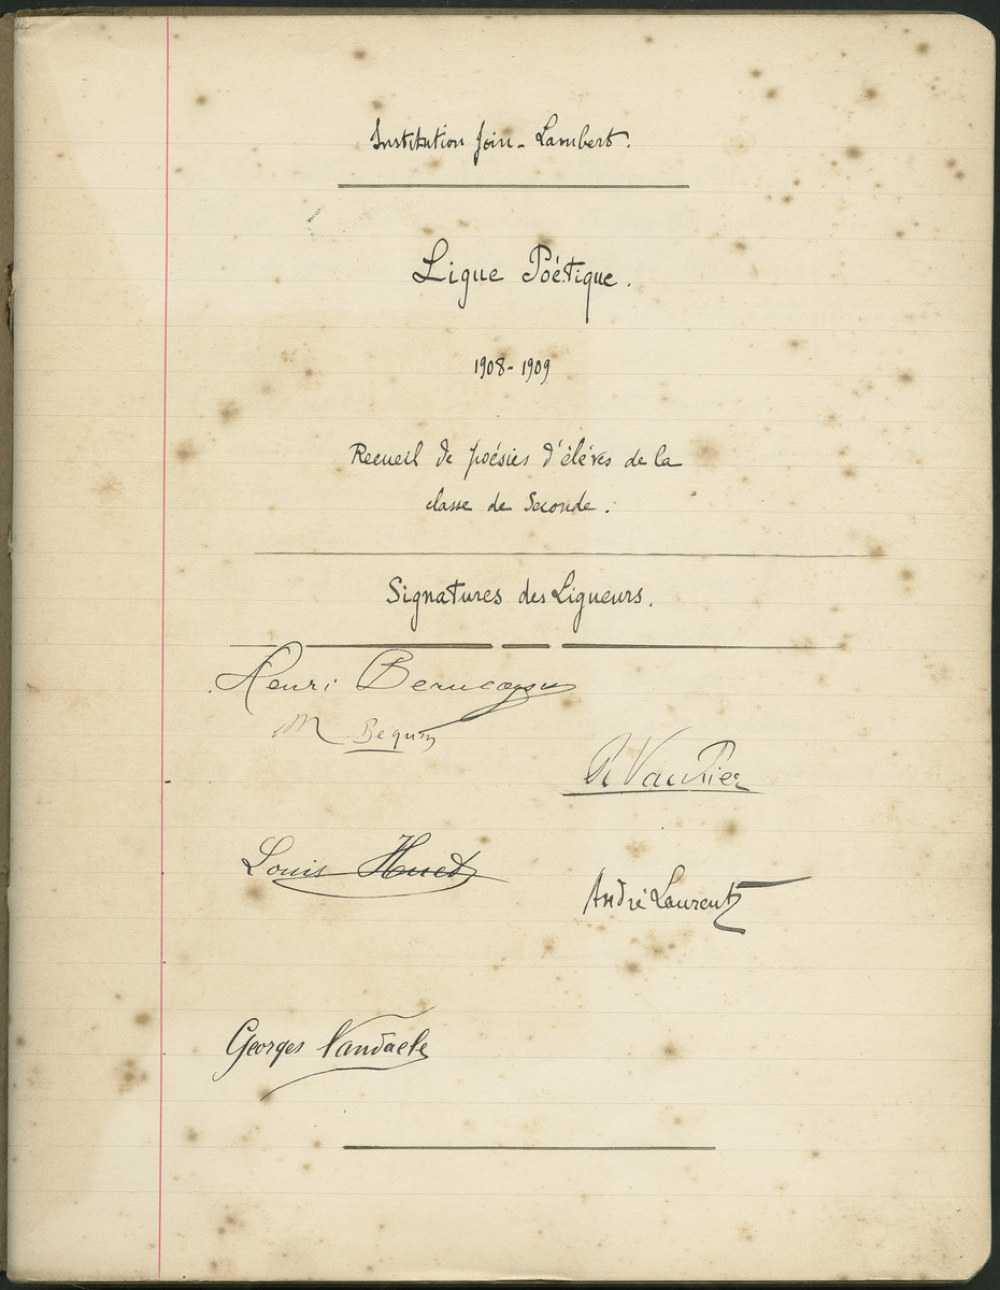 Institution Join-Lambert.
Ligue Poétique.
1908-1909
Recueil de poésies d'élèves de la
classe de Seconde.
Signatures des Ligueurs.
Henri
M Bequin
Louis Huet
André Laurent
Georges Vandaele